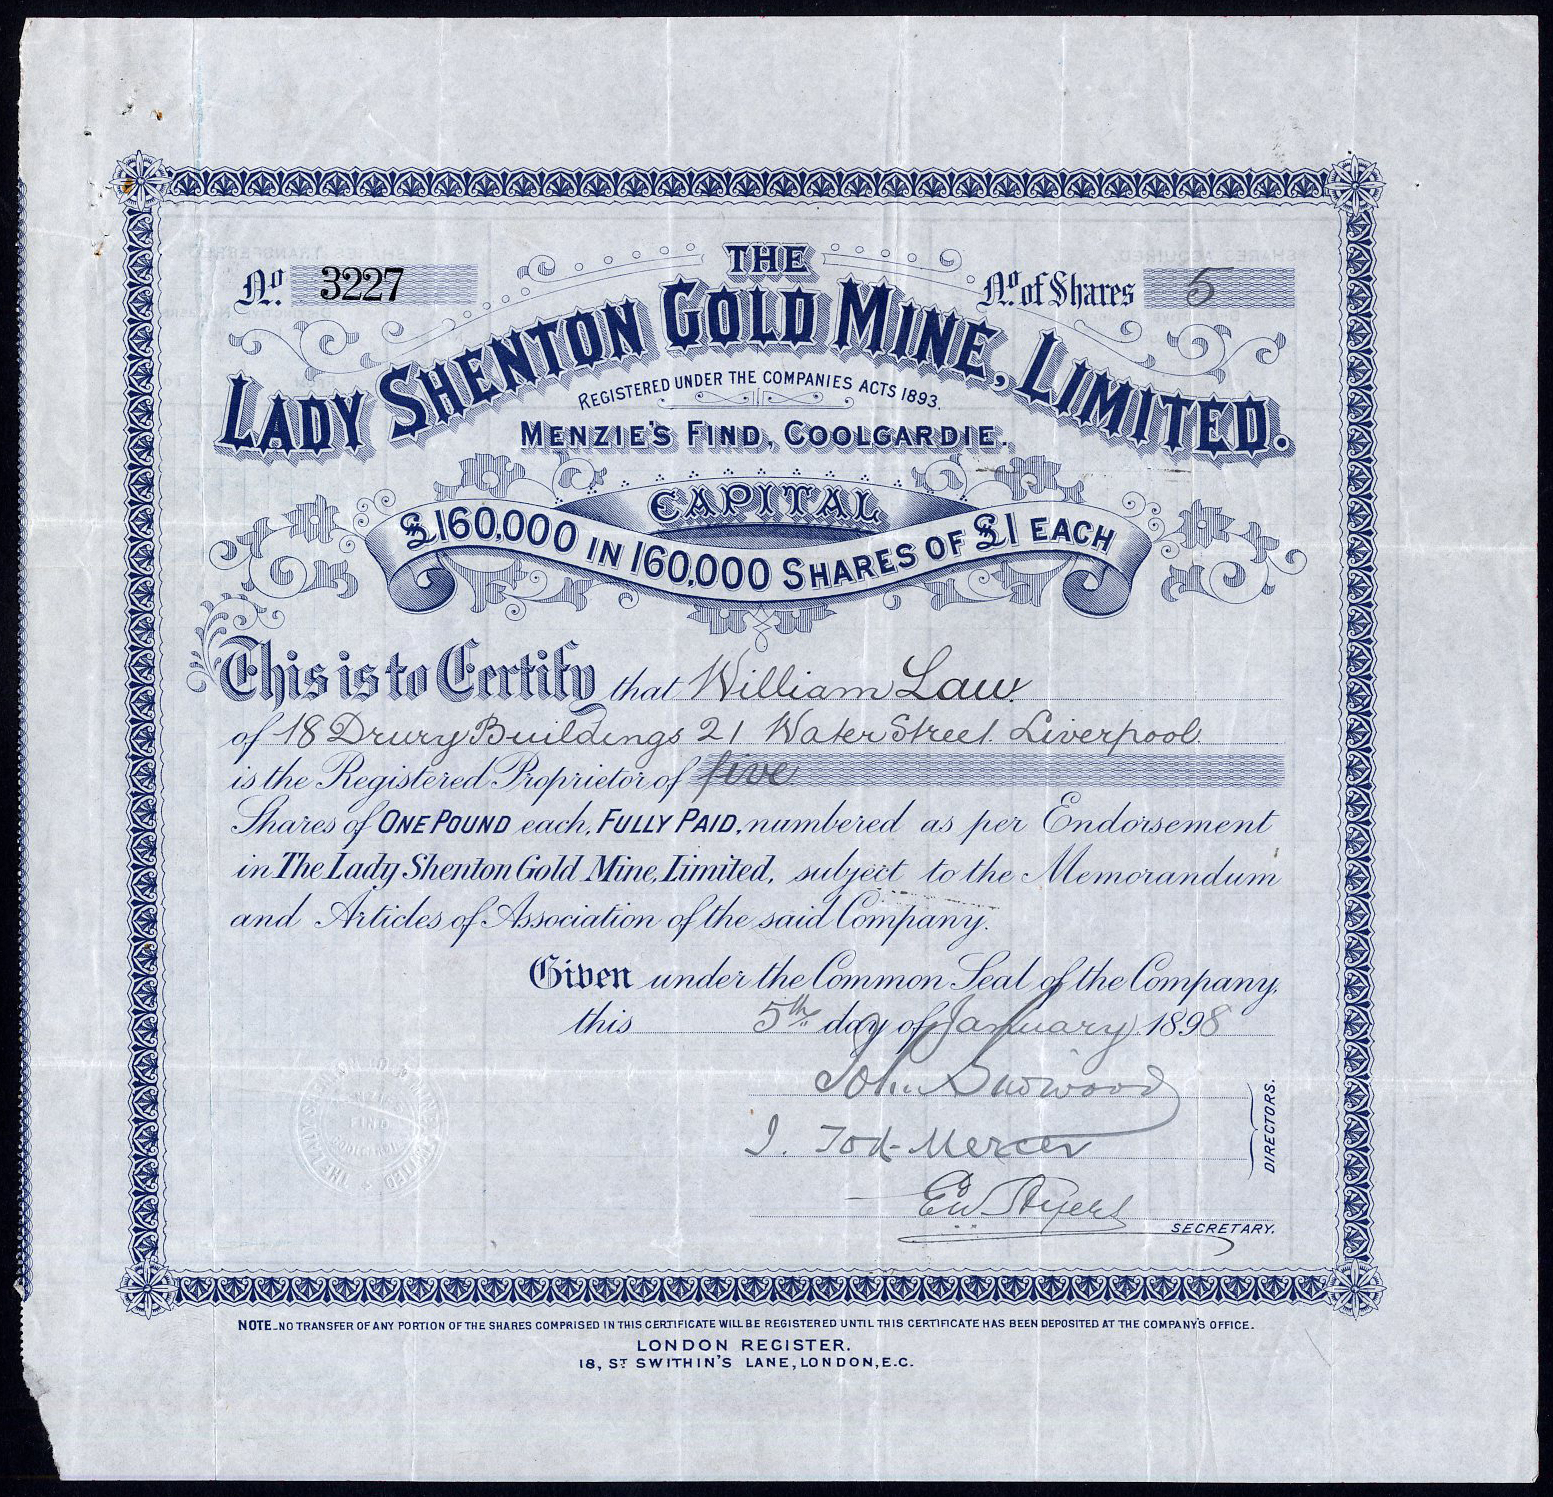 No. 3227
No. of Shares 5
THE
LADY SHENTON GOLD MINE, LIMITED.
REGISTERED UNDER THE COMPANIES ACTS 1893.
MENZIE'S FIND, COOLGARDIE.
CAPITAL
£160,000 IN 160,000 SHARES OF £1 EACH
This is to Certify that William Law
of 18 Drury Buildings 21 Water Street Liverpool
is the Registered Proprietor of five
Shares of ONE POUND each, FULLY PAID, numbered as per Endorsement
in The Lady Shenton Gold Mine, Limited, subject to the Memorandum
and Articles of Association of the said Company.
Given under the Common Seal of the Company,
this 5th day of January 1898
John
J. Tod-Mercer
DIRECTORS.
SECRETARY.
NOTE_NO TRANSFER OF ANY PORTION OF THE SHARES COMPRISED IN THIS CERTIFICATE WILL BE REGISTERED UNTIL THIS CERTIFICATE HAS BEEN DEPOSITED AT THE COMPANY'S OFFICE.
LONDON REGISTER.
18, ST SWITHIN'S LANE, LONDON, E.C.